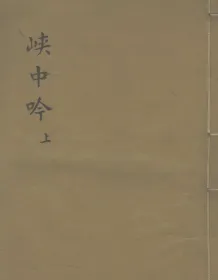 峡中吟上